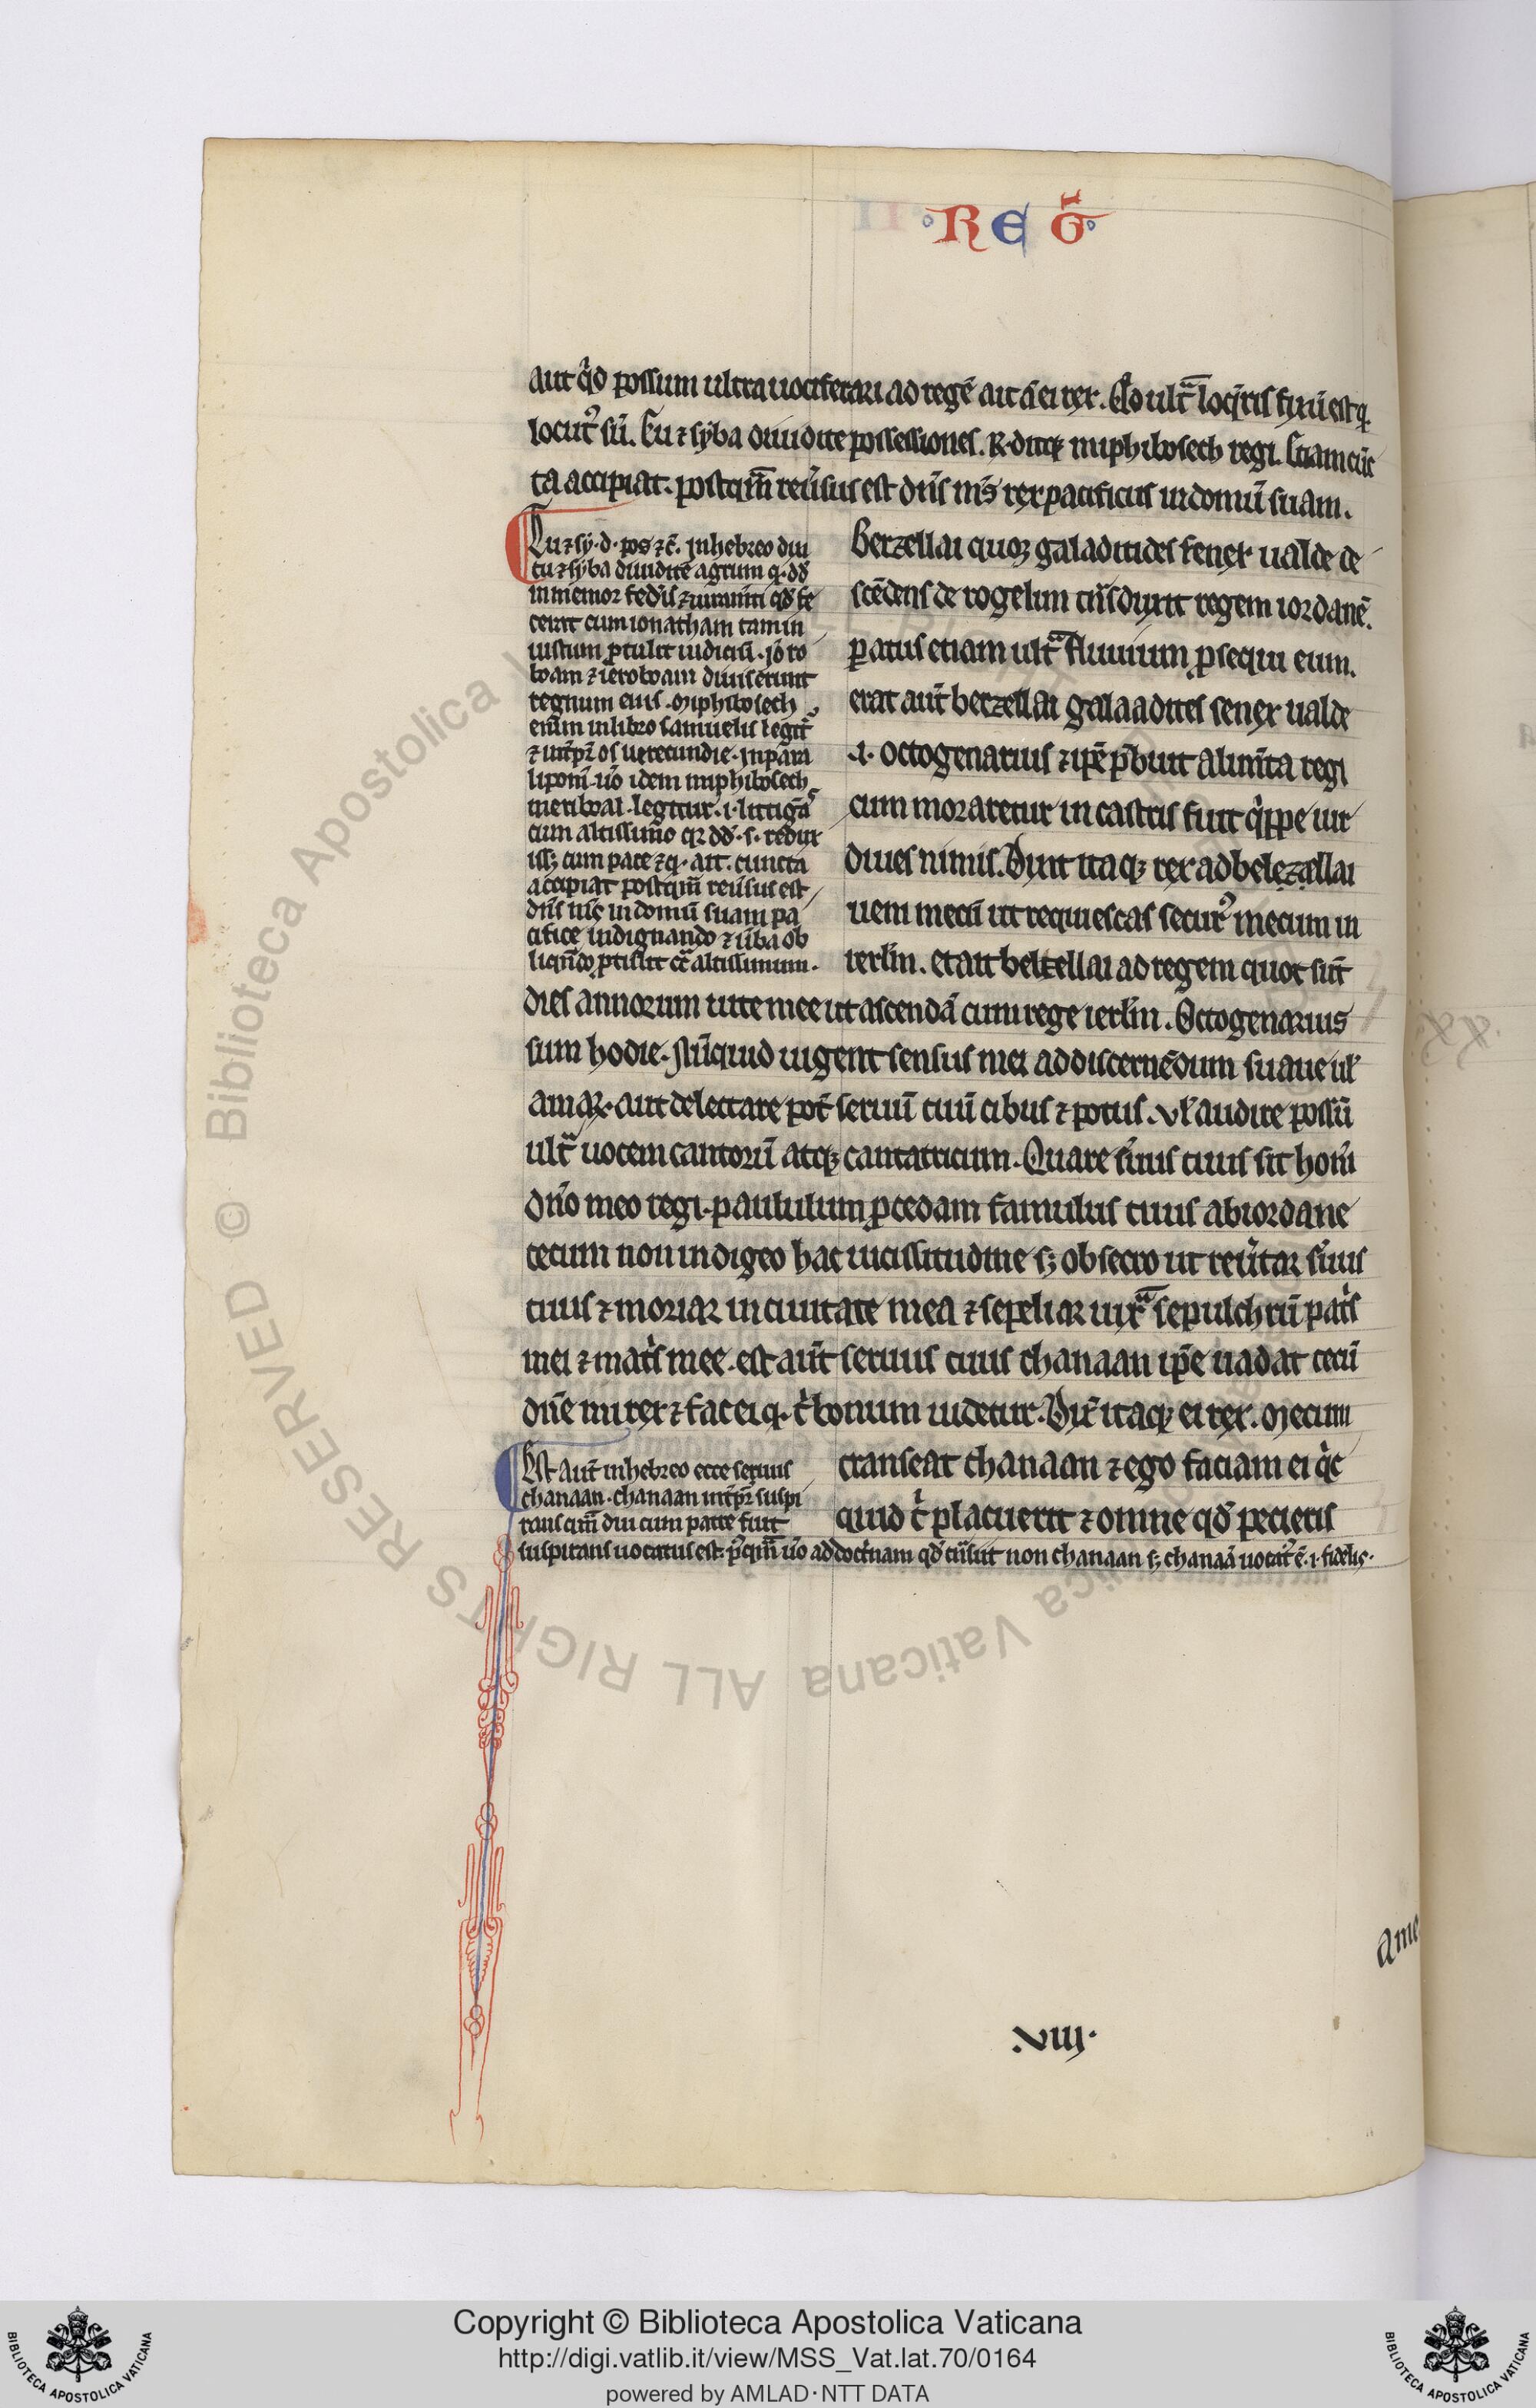 · R E G̅ ·
aut q̇d possum ultra uociferari ad regē ait ā ei rex. Qͦd ult̄ loq̄ris fixū est q̄
locut᷒ sū. Tu ⁊ syba diuidite possessiones. R. ditq; miphibosech regi. Etiam cūc
ta accipiat. postqm̄ reūsus est dn̄s m̄s rex pacificus in domū suam.
Tu ⁊ sy. d. pos ⁊ c̄. In hebreo diu
tu ⁊ syba diuidite agrum q. dd̄
inmemor fed̄is ⁊ iuramti qd̄ fe
cerat cum ionathan tam in
iustum ptulit iudiciū. Iō ro
boam ⁊ ieroboam diuiserunt
regnum eius. Miphibosech
enim in libro samuelis legit᷒
⁊ int̄p̄r̄ os uerecundie. In para
lipom̄. uō idem miphibosech
meribaal. legitur. i. litiga
cum altissimo qr dd̄. s. redux
iss; cum pace ⁊ q. ait. cuncta
accipiat postqm̄ reūsus est
dn̄s m̄s in domū suam pa
cifice indignando ⁊ ūba ob
liqn̄do ptulit ct̄ altissimum.
Berzellai quoq; galaaditides senex ualde de
scēdens de rogelim tn̄sduxit regem iordanē.
patus etiam ult̄ fluuium psequi eum.
erat aut̄ berzellai galaadites senex ualde
.i. octogenarius ⁊ ip̄e p̄buit alim̄ta regi
cum moraretur in castris fuit q̇ppe uir
diues nimis. Dixit itaq; rex ad belezallai
ueni mecū ut requiescas secur᷒ mecum in
ierlm̄. et ait belzellai ad regem quot sūt
dies annorum uite mee ut ascendā cum rege ierlm̄. Octogenarius
sum hodie. Nūquid uigent sensus mei ad discernēdum suaue ul̄
amar. aut delectare pot̄ seruū tuū cibus ⁊ potus. ul̄ audire possū
ult̄ uocem cantorū atq; cantatricum. Quare s̄uus tuus sit hon̄i
dn̄o meo regi. paululum pcedam famulus tuus ab iordane
tecum non indigeo hac uicissitudine s; obsecro ut reūtar s̄uus
tuus ⁊ moriar in ciuitate mea ⁊ sepeliar iuxᵃ sepulchrū patᶤs
mei ⁊ matᶤs mee. est aut̄ seruus tuus chanaan ip̄e uadat tecū
dn̄e mi rex ⁊ fac ei q. tᶤ bonum uidetur. Dix̄ itaq; ei rex. Mecum
transeat chanaan ⁊ ego faciam ei q̇c
quid tᶤ placuerit ⁊ omne qd̄ pecieris
Est aut̄ in hebreo ecce seruus
chanaan. chanaan int̄p̄r̄ suspi
rans qm̄ diu cum patre fuit
suspirans uocatus est. p᷒qm̄ uō ad doct̄nam qd̄ tn̄siit non chanaan s; chanaā uocat᷒ ē. i. fidelis.
Ame
.VIII.
Copyright © Biblioteca Apostolica Vaticana
http://digi.vatlib.it/view/MSS_Vat.lat.70/0164
powered by AMLAD·NTT DATA
BIBLIOTECA APOSTOLICA VATICANA
BIBLIOTECA APOSTOLICA VATICANA
Biblioteca Apostolica Vaticana ALL RIGHTS RESERVED ©